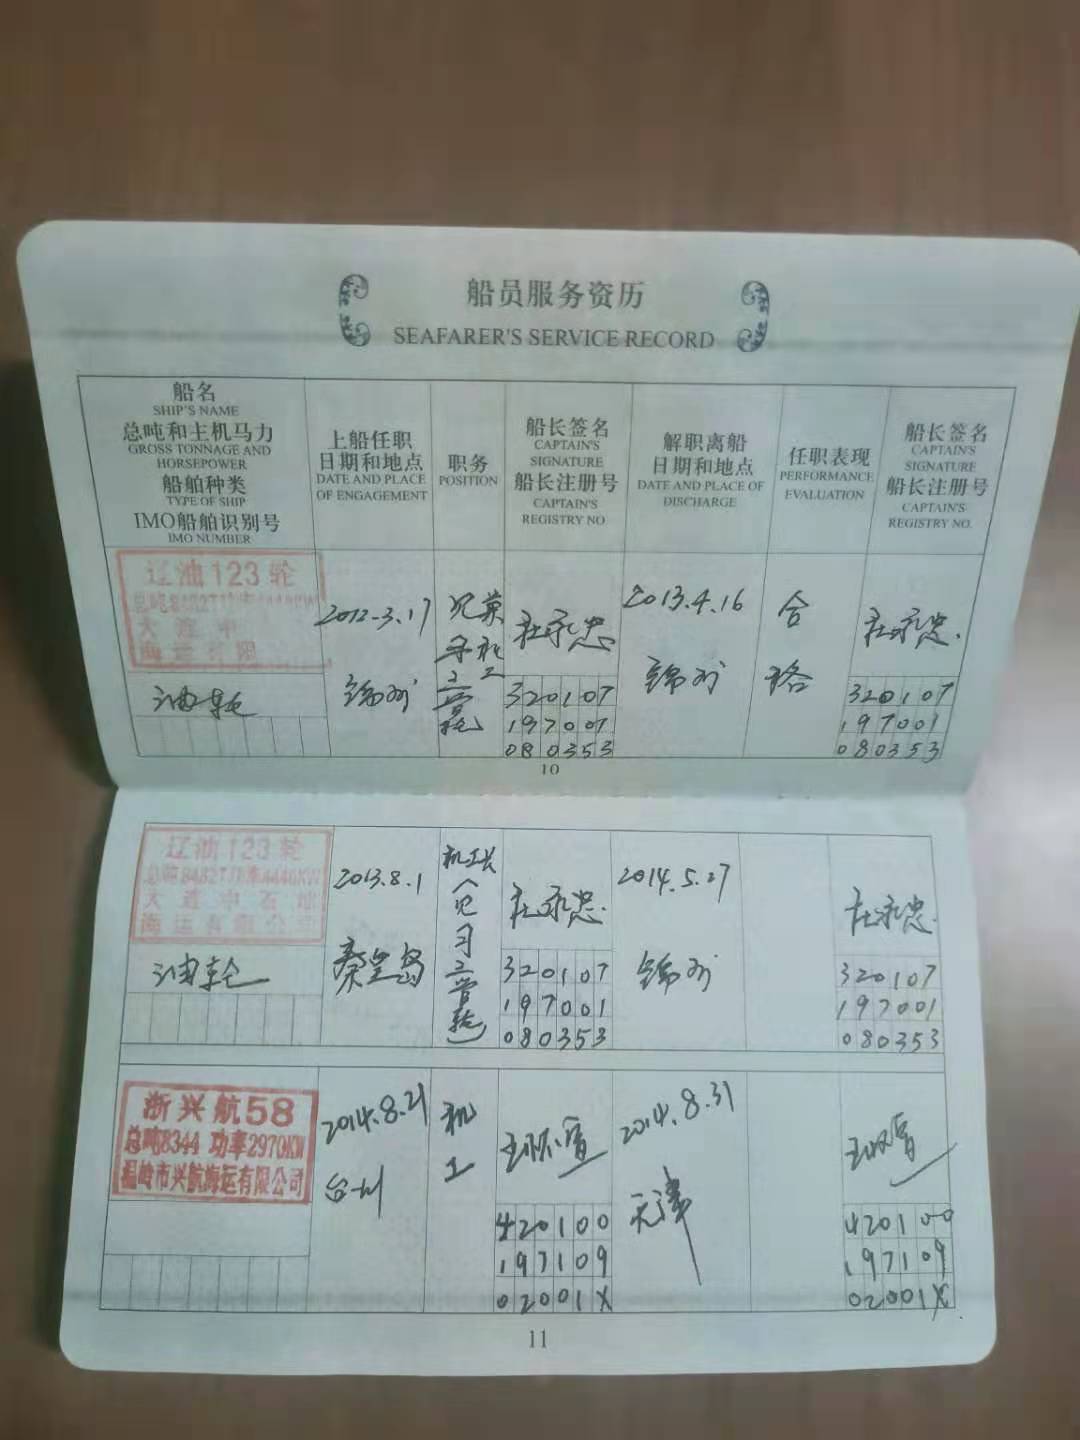 船员服务资历
SEAFARER'S SERVICE RECORD
船名
SHIP'S NAME
总吨和主机马力
GROSS TONNAGE AND
HORSEPOWER
船舶种类
TYPE OF SHIP
IMO船舶识别号
IMO NUMBER
上船任职
日期和地点
DATE AND PLACE
OF ENGAGEMENT
职务
POSITION
船长签名
CAPTAIN'S
SIGNATURE
船长注册号
CAPTAIN'S
REGISTRY NO
解职离船
日期和地点
DATE AND PLACE OF
DISCHARGE
任职表现
PERFORMANCE
EVALUATION
船长签名
CAPTAIN'S
SIGNATURE
船长注册号
CAPTAIN'S
REGISTRY NO.
辽油123轮
大连中
海运有限
油轮
2012.3.17
锦州
杜永忠
320107
197001
080353
2013.4.16
锦州
合
格
杜永忠.
320107
197001
080353
10
辽油123轮
总吨8482T功率4440KW
大连中石油
海运有限公司
油轮
2013.8.1
秦皇岛
机工长
(见
习
三
管
轮)
杜永忠.
320107
197001
080353
2014.5.27
锦州
杜永忠.
320107
197001
080353
浙兴航58
总吨8344 功率2970KW
温岭市兴航海运有限公司
2014.8.21
台州
机
工
420100
197109
02001X
2014.8.31
天津
420100
197109
02001X
11